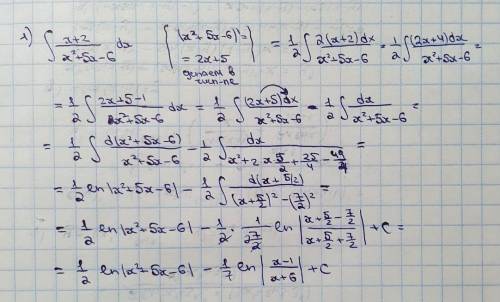 1) ∫ (x+2)/(x²+5x-6) dx { (x²+5x-6)' = = 2x+5 делаем в числ-ле } = 1/2 ∫ 2(x+2)dx/(x²+5x-6) = 1/2 ∫ (2x+4)dx/(x²+5x-6) =
= 1/2 ∫ (2x+5-1)/(x²+5x-6) dx = 1/2 ∫ (2x+5)dx/(x²+5x-6) - 1/2 ∫ dx/(x²+5x-6) =
= 1/2 ∫ d(x²+5x-6)/(x²+5x-6) - 1/2 ∫ dx/(x²+2x 5/2+25/4-49/4) =
= 1/2 ln|x²+5x-6| - 1/2 ∫ d(x+5/2)/((x+5/2)²-(7/2)²) =
= 1/2 ln|x²+5x-6| - 1/2 · 1/(2 7/2) ln|(x+5/2-7/2)/(x+5/2+7/2)| + C =
= 1/2 ln|x²+5x-6| - 1/7 ln|(x-1)/(x+6)| + C